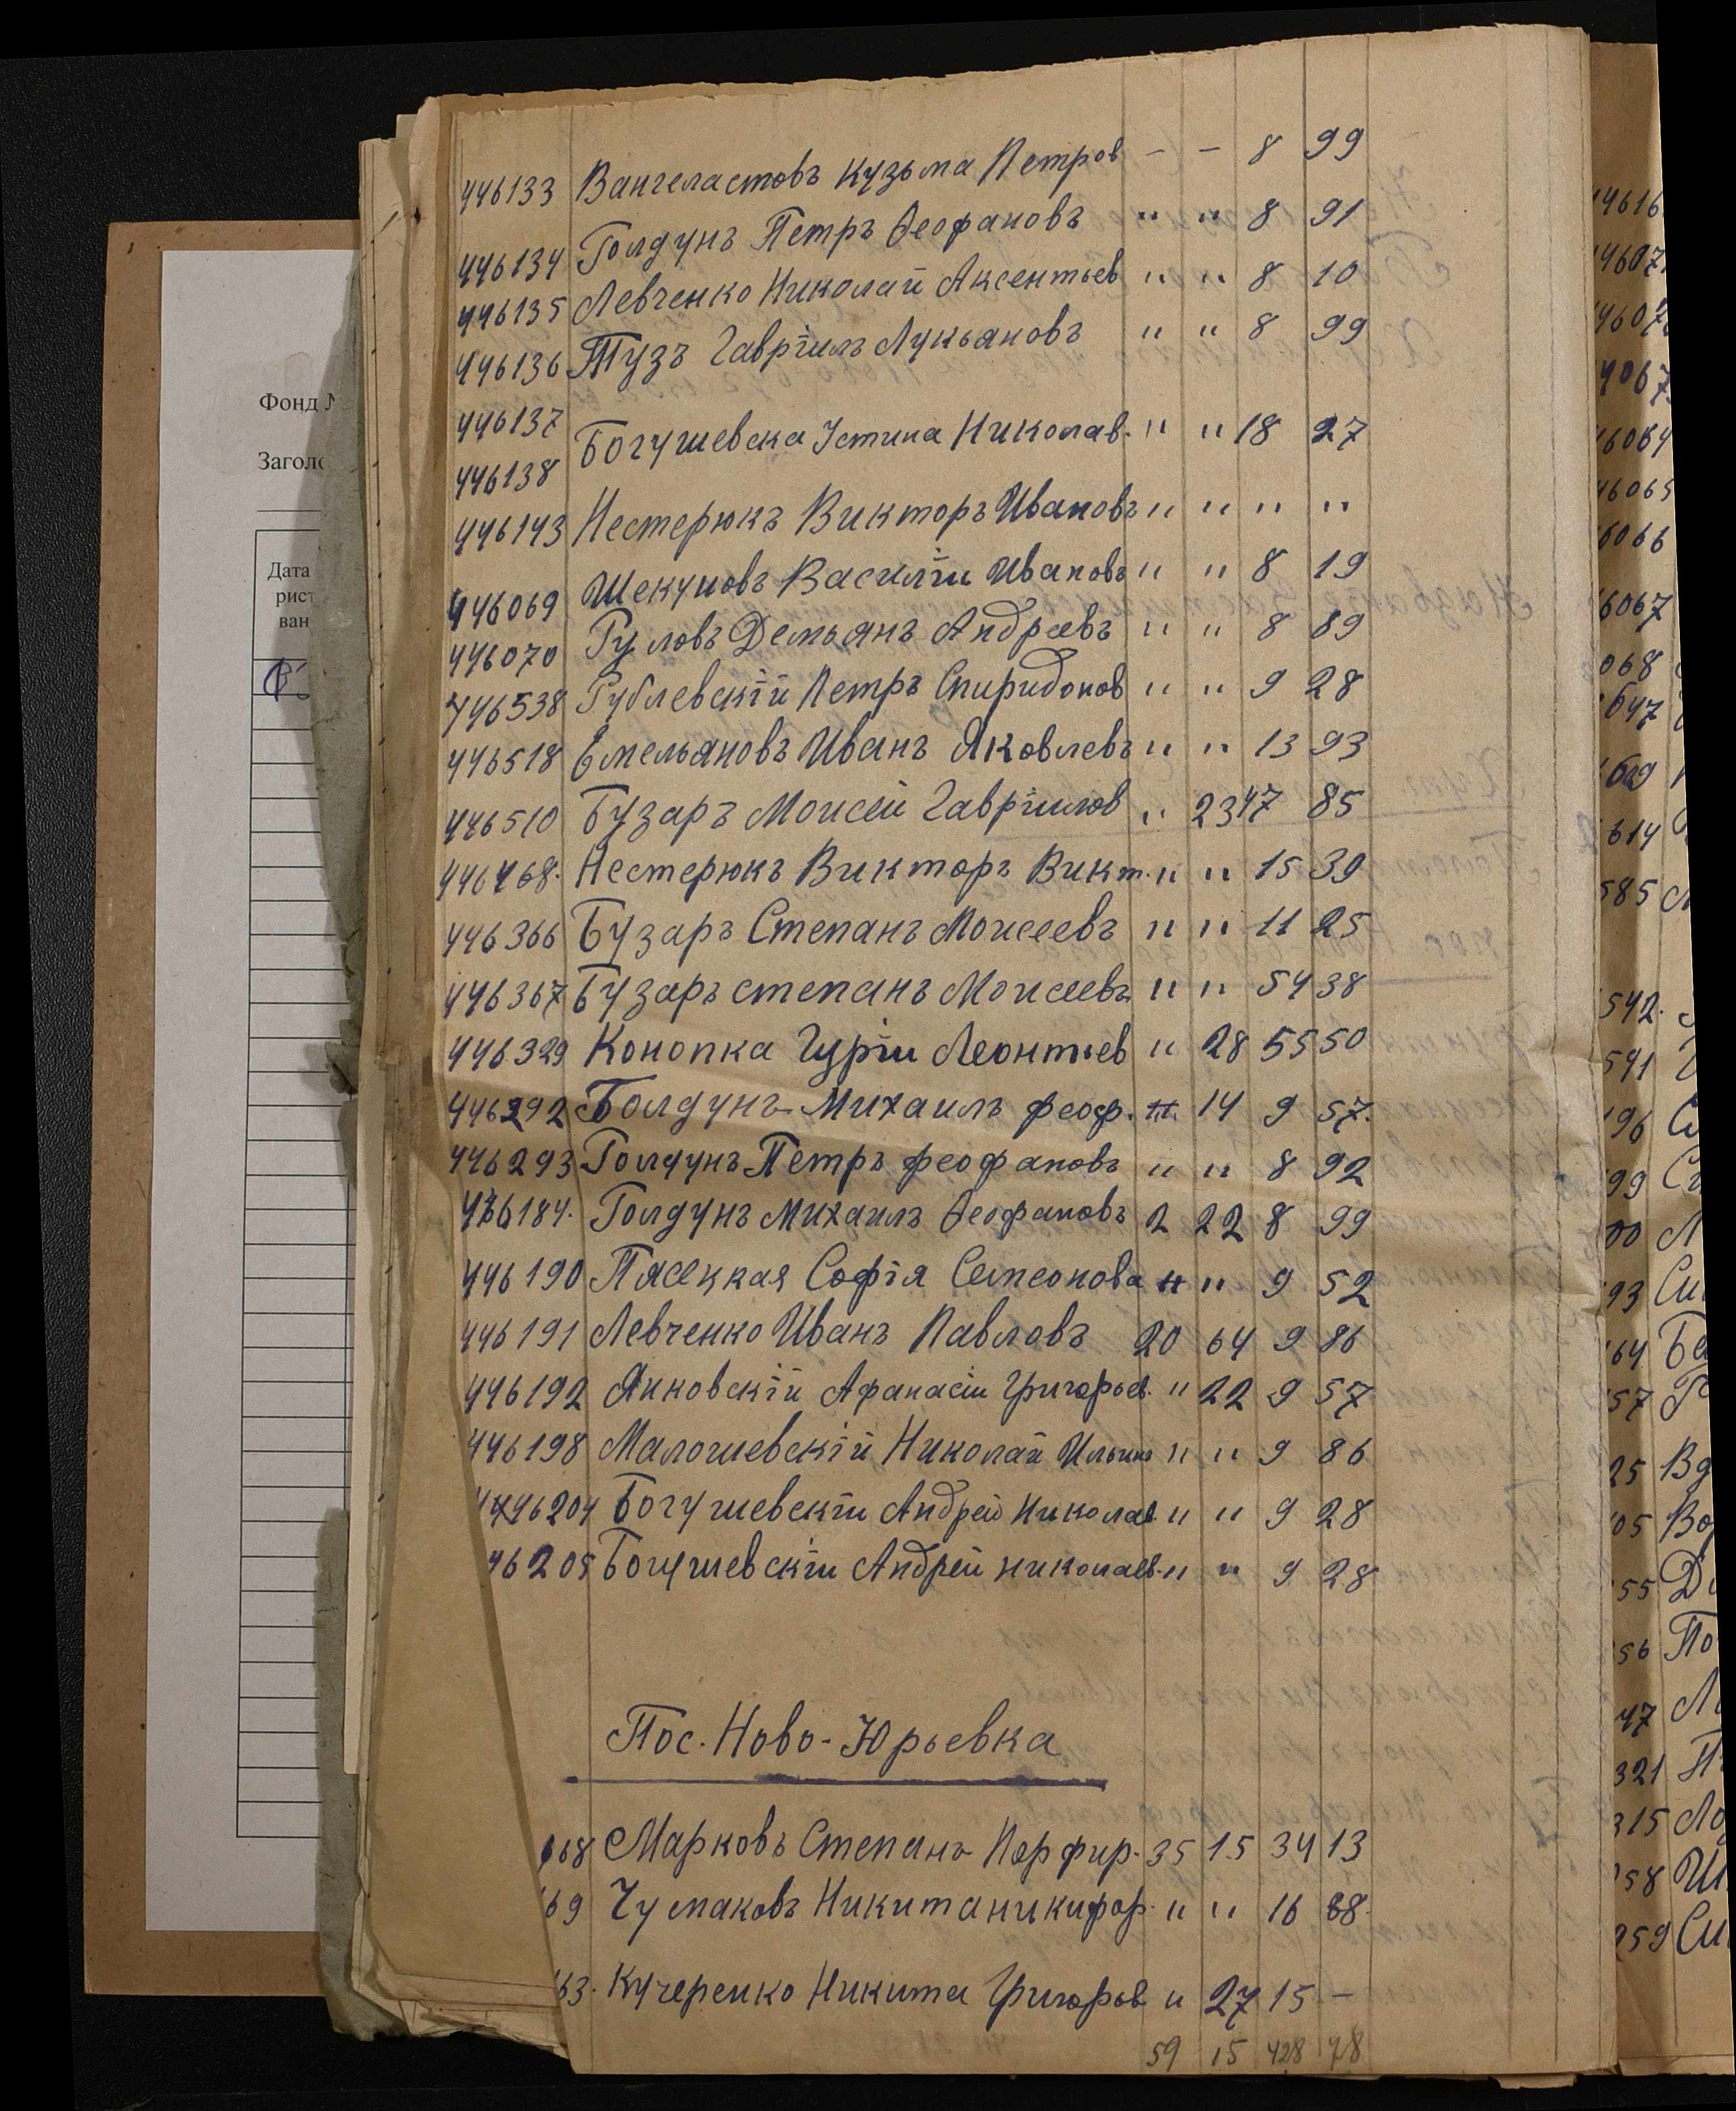 446133 Вангеластовъ Кузьма Петров - - 8 99
446134 Голдунъ Петръ Ѳеофановъ " " 8 91
446135 Левченко Николай Аксентьев " " 8 10
446136 Тузъ Гавріилъ Лукьяновъ " " 8 99
446137
446138 Богушевска Устина Николав. " " 18 27
446143 Нестерюкъ Викторъ Ивановъ " " " "
446069 Шекуновъ Василій Ивановъ " " 8 19
446070 Руловъ Демьянъ Андреевъ " " 8 89
446538 Рублевскій Петръ Спиридонов " " 9 28
446518 Емельяновъ Иванъ Яковлевъ " " 13 93
446510 Бузаръ Моисей Гавріилов " 23 47 85
446468. Нестерюкъ Викторъ Викт. " " 15 39
446366 Бузаръ Степанъ Моисеевъ " " 11 25
446367 Бузаръ степанъ Моисеевъ " " 54 38
446329 Конопка Гурій Леонтьев " 28 55 50
446292 Болдунъ Михаилъ феоф. " 14 9 57.
446293 Голдунъ Петръ феофановъ " " 8 92
446184. Голдунъ Михаилъ Ѳеофановъ 2 22 8 99
446190 Пясецкая Софія Семеонова " " 9 52
446191 Левченко Иванъ Павловъ 20 64 9 86
446192 Янковскій Афанасій Григорьев. " 22 9 57
446198 Малошевскій Николай Ильинъ " " 9 86
446204 Богушевскій Андрей Николаев. " " 9 28
46205 Богушевскій Андрей николаев. " " 9 28
Пос. Ново-Юрьевка
68 Марковъ Степанъ Порфир. 35 15 34 13
69 Чумаковъ Никита никифор. " " 16 88.
63. Кучеренко Никита Григоров " 27 15 -
59 15 428 78
Фонд №
Заголо
Дата
рист
ван